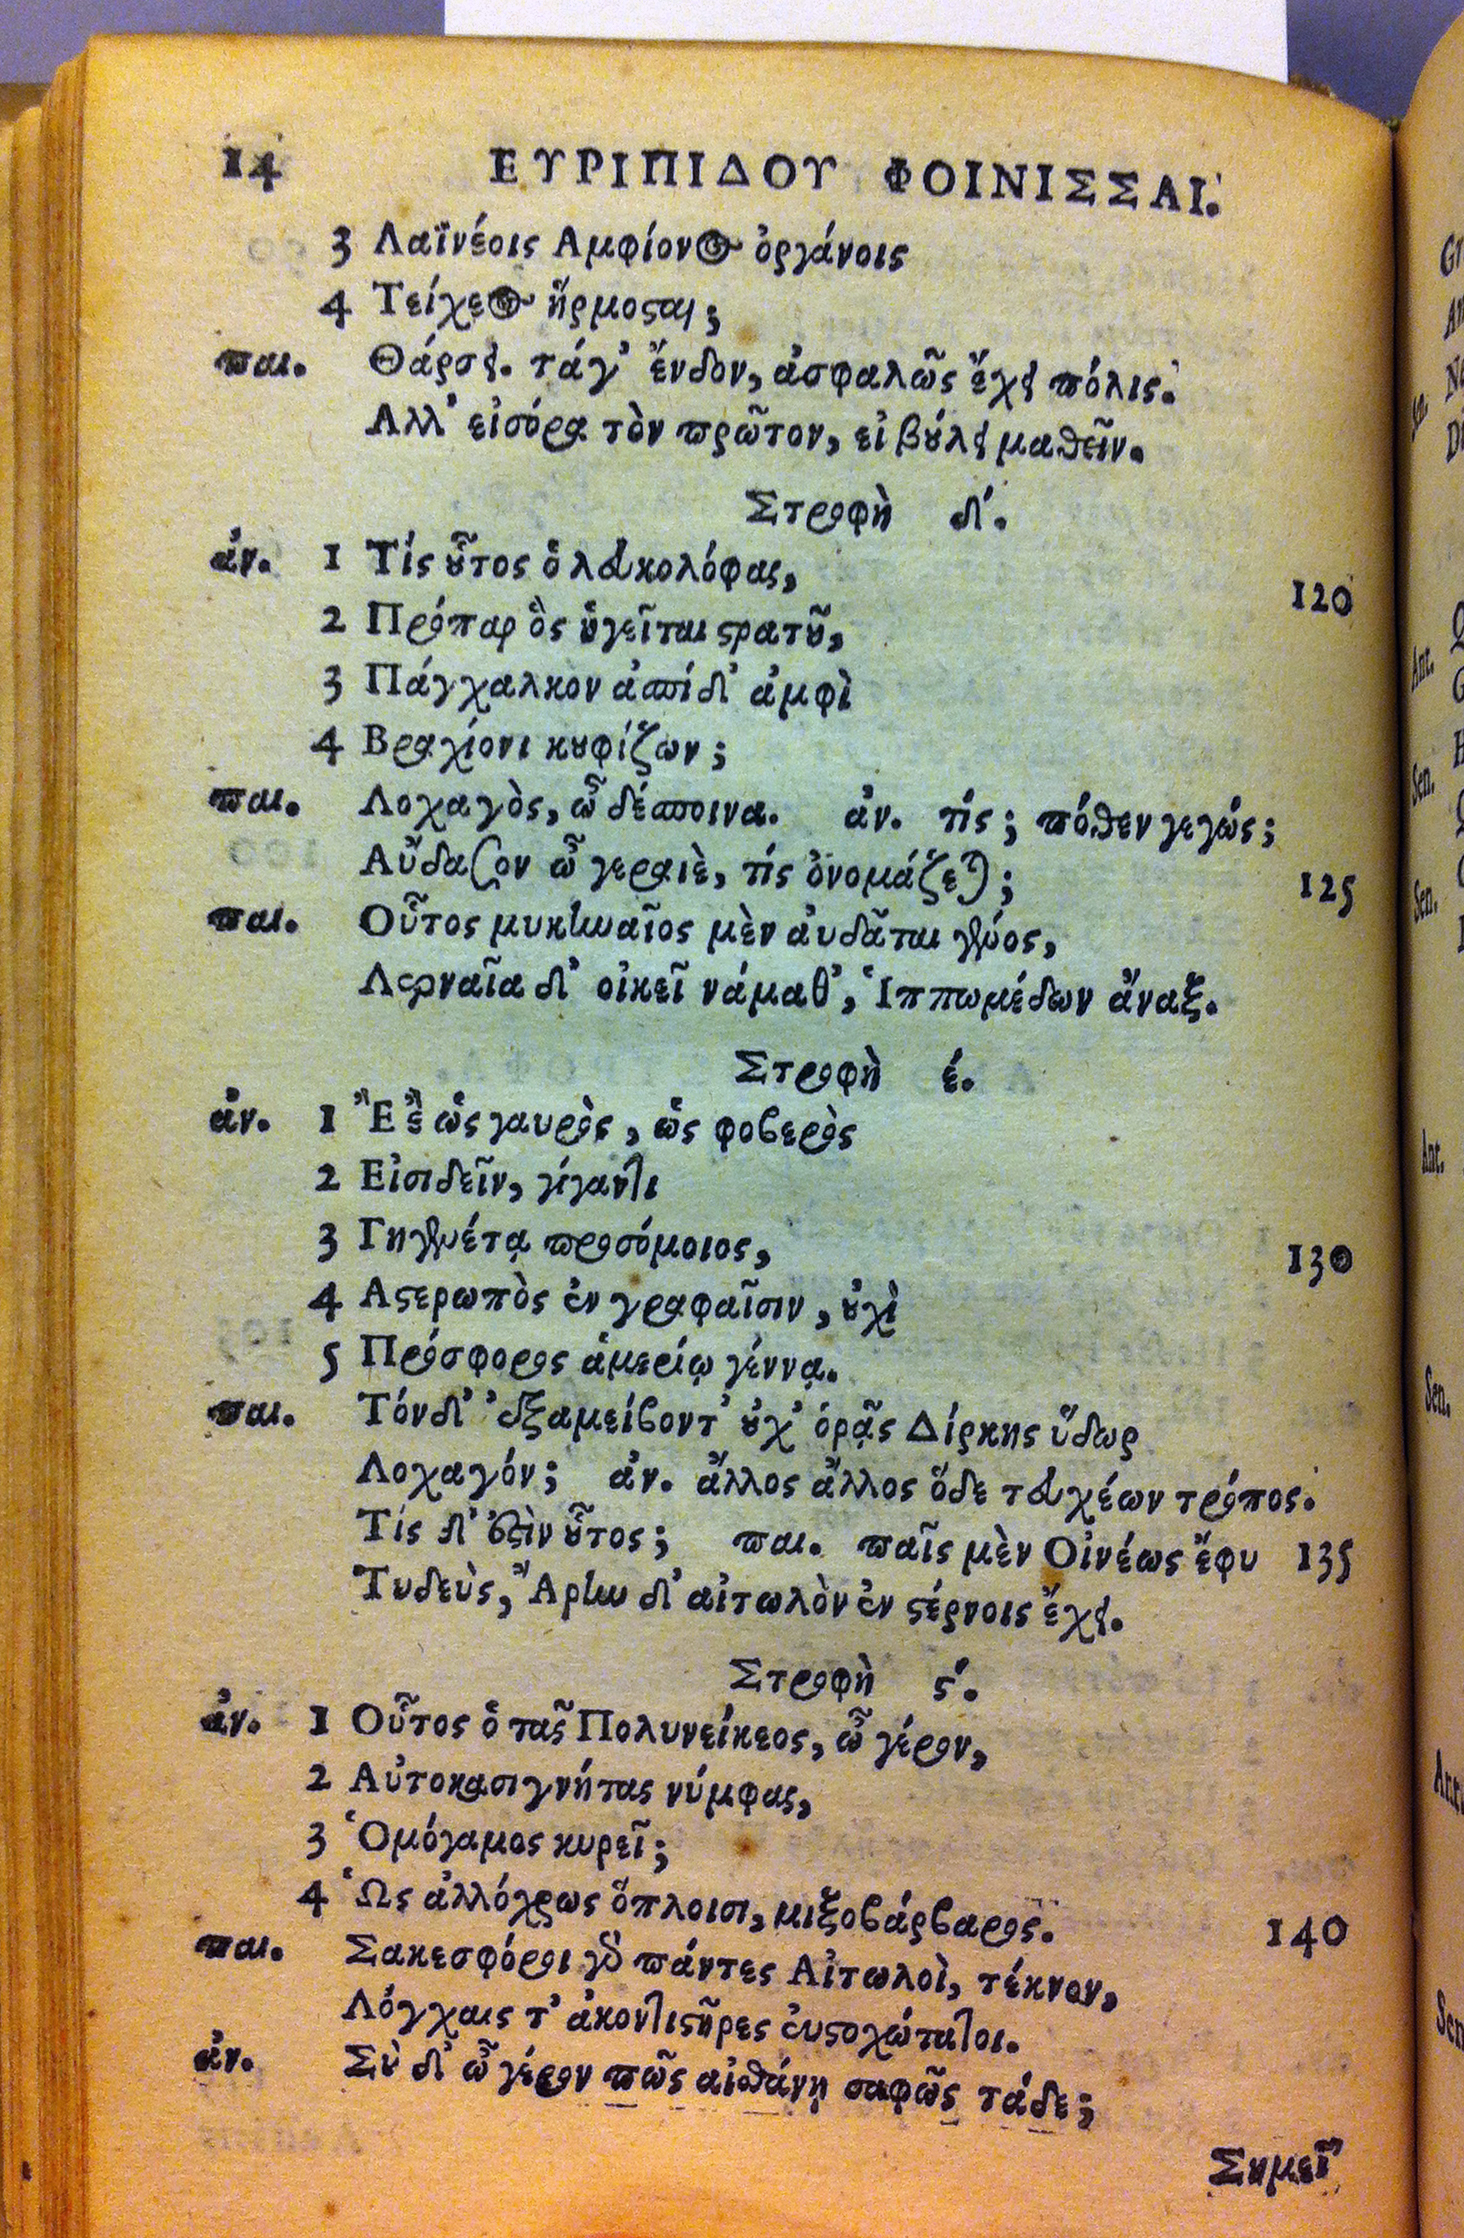 14 ΕΥΡΙΠΙΔΟΥ ΦΟΙΝΙΣΣΑΙ.
3 Λαϊνέοις Αμφίονος ὀργάνοις
4 Τείχεος ἥρμοσαι;
παι. Θάρσει. τάγ' ἔνδον, ἀσφαλῶς ἔχει πόλις.
Αλλ' εἰσόρα τὸν πρῶτον, εἰ βούλει μαθεῖν.
Στροφὴ δ'.
ἀν. 1 Τίς οὗτος ὁ λευκολόφας,
120
2 Πρόπαρ ὃς ἁγεῖται στρατοῦ,
3 Πάγχαλκον ἀσπίδ' ἀμφὶ
4 Βραχίονι κουφίζων;
παι. Λοχαγὸς, ὦ δέσποινα. ἀν. τίς; πόθεν γεγώς;
Αὔδασον ὦ γεραιὲ, τίς ὀνομάζεται;
125
παι. Οὗτος μυκηναῖος μὲν αὐδᾶται γένος,
Λερναῖα δ' οἰκεῖ νάμαθ', Ἱππωμέδων ἄναξ.
Στροφὴ έ.
ἀν. 1 Ἒ ἒ ὡς γαυρὸς, ὡς φοβερὸς
2 Εἰσιδεῖν, γίγαντι
3 Γηγενέτᾳ προσόμοιος,
130
4 Αστερωπὸς ἐν γραφαῖσιν, οὐχὶ
5 Πρόσφορος ἁμερίῳ γέννᾳ.
παι. Τόνδ' ἐξαμείβοντ' οὐχ' ὁρᾷς Δίρκης ὕδωρ
Λοχαγόν; ἀν. ἄλλος ἄλλος ὅδε τευχέων τρόπος.
Τίς δ' ἐστὶν οὗτος; παι. παῖς μὲν Οἰνέως ἔφυ 135
Τυδεὺς, Ἄρην δ' αἰτωλὸν ἐν στέρνοις ἔχει.
Στροφὴ ϛ'.
ἀν. 1 Οὗτος ὁ τᾶς Πολυνείκεος, ὦ γέρον,
2 Αὐτοκασιγνήτας νύμφας,
3 Ὁμόγαμος κυρεῖ;
4 Ὡς ἀλλόχρως ὅπλοισι, μιξοβάρβαρος.
140
παι. Σακεσφόροι γὰρ πάντες Αἰτωλοὶ, τέκνον,
Λόγχαις τ' ἀκοντιστῆρες εὐστοχώτατοι.
ἀν. Σὺ δ' ὦ γέρον πῶς αἰσθάνῃ σαφῶς τάδε;
Σημεῖ'